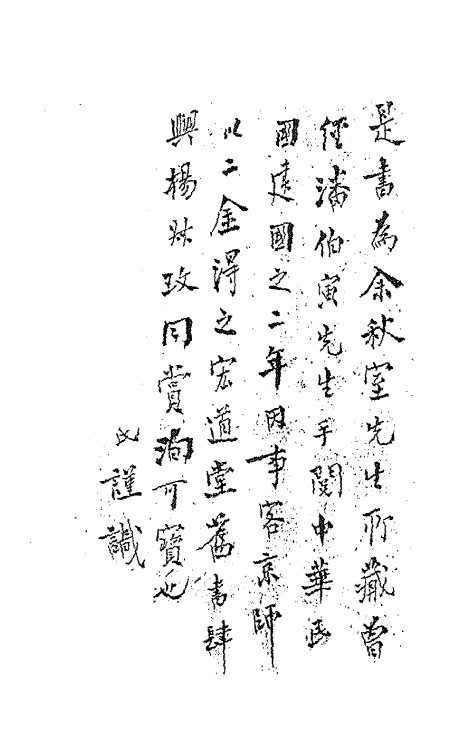 是書為余秋室先生所藏曾
經潘伯寅先生手閱中華民
國建國之二年因事客京師
以二金得之宏道堂舊書肆
與楊㳄攻同賞洵可寶也
氏謹識